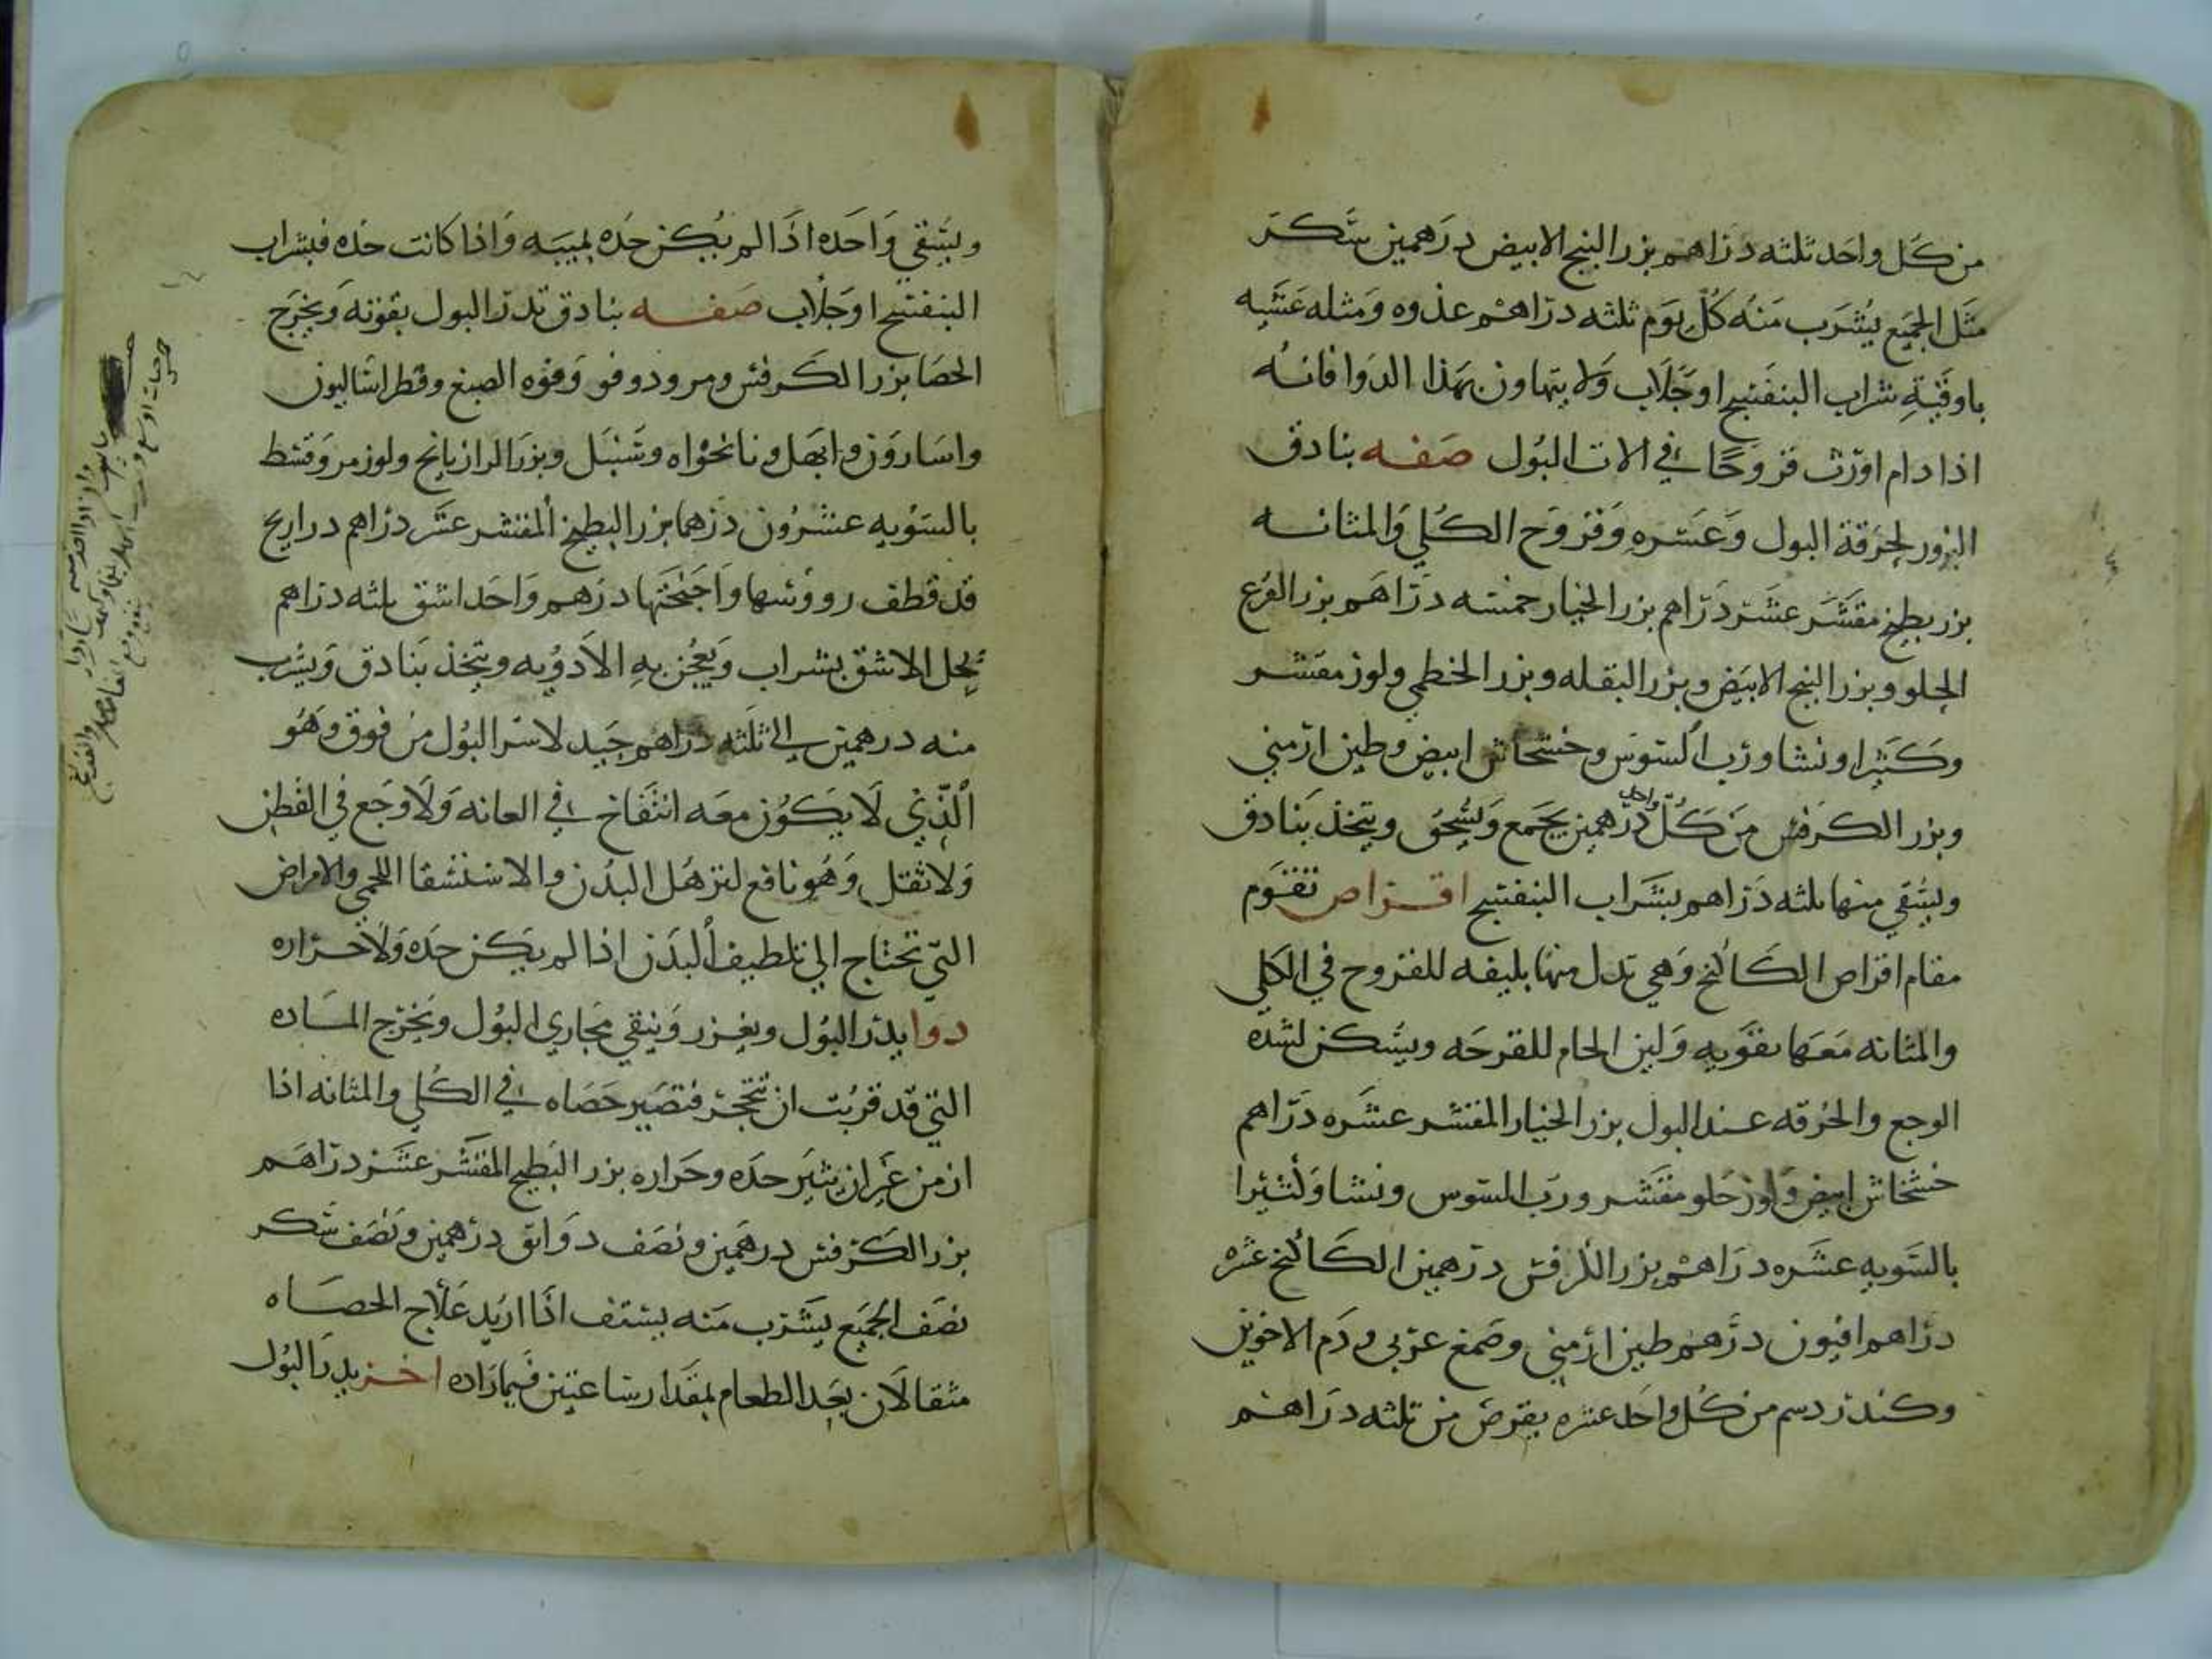 من كل واحد ثلثه دراهم بزر البنج الابيض درهمين سكر
مثل الجميع يشرب منه كل يوم ثلثه دراهم غدوه ومثله عشيه
باوقية شراب البنفسج او جلاب ولا يتهاون بهذا الدوا فانه
اذا دام اورث قروحا في الات البول صفه بنادق
البزور لحرقة البول وعسره وقروح الكلي والمثانه
بزر بطيخ مقشر عشر دراهم بزر الخيار خمسه دراهم بزر القرع
الحلو وبزر البنج الابيض وبزر البقله وبزر الخطمي ولوز مقشر
وكثيرا ونشا ورب السوس وخشخاش ابيض وطين ارمني
وبزر الكرفس من كل واحد درهمين يجمع ويسحق ويتخذ بنادق
ويسقي منها ثلثه دراهم بشراب البنفسج اقراص تقوم
مقام اقراص الكاكنج وهي تدل منها للقروح في الكلي
والمثانه معها تقويه ولين الحام للقرحه ويسكن لشده
الوجع والحرقه عند البول بزر الخيار المقشر عشره دراهم
خشخاش ابيض ولوز حلو مقشر ورب السوس ونشا وكثيرا
بالسويه عشره دراهم بزر الكرفس درهمين الكاكنج عشره
دراهم افيون درهم طين ارمني وصمغ عربي ودم الاخوين
وكندر دسم من كل واحد عشره يقرص من ثلثه دراهم
ويسقي واحده اذا لم يكن حده لهيبه واذا كانت حده فبشراب
البنفسج او جلاب صفه بنادق تدر البول بقوته ويخرج
الحصا بزر الكرفس ومر ودوقو وفوه الصبغ وفطراساليون
واسارون وابهل ونانخواه وسنبل وبزر الرازيانج ولوز مر وقسط
بالسويه عشرون درهما بزر البطيخ المقشر عشر دراهم دراريح
قد قطف رووسها واجنحتها درهم واحد اشق ثلثه دراهم
يحل الاشق بشراب ويعجن به الادويه ويتخذ بنادق ويشرب
منه درهمين الي ثلثه دراهم جيد لاسر البول من فوق وهو
الذي لا يكون معه انتفاخ في العانه ولا وجع في القطن
ولا ثقل وهو نافع لترهل البدن والاستسقا اللحمي والامراض
التي تحتاج الي تلطيف البدن اذا لم يكن حده ولا حراره
دوا يدر البول ويغزر وينقي مجاري البول ويخرج الماده
التي قد قربت ان تتحجر فتصير حصاه في الكلي والمثانه اذا
ازمن غير ان يثير حده وحراره بزر البطيخ المقشر عشر دراهم
بزر الكرفس درهمين ونصف دوقو درهمين ونصف سكر
نصف الجميع يشرب منه يستف اذا اريد علاج الحصاه
مثقالان بعد الطعام بمقدار ساعتين فيما زاده اخر يدر البول